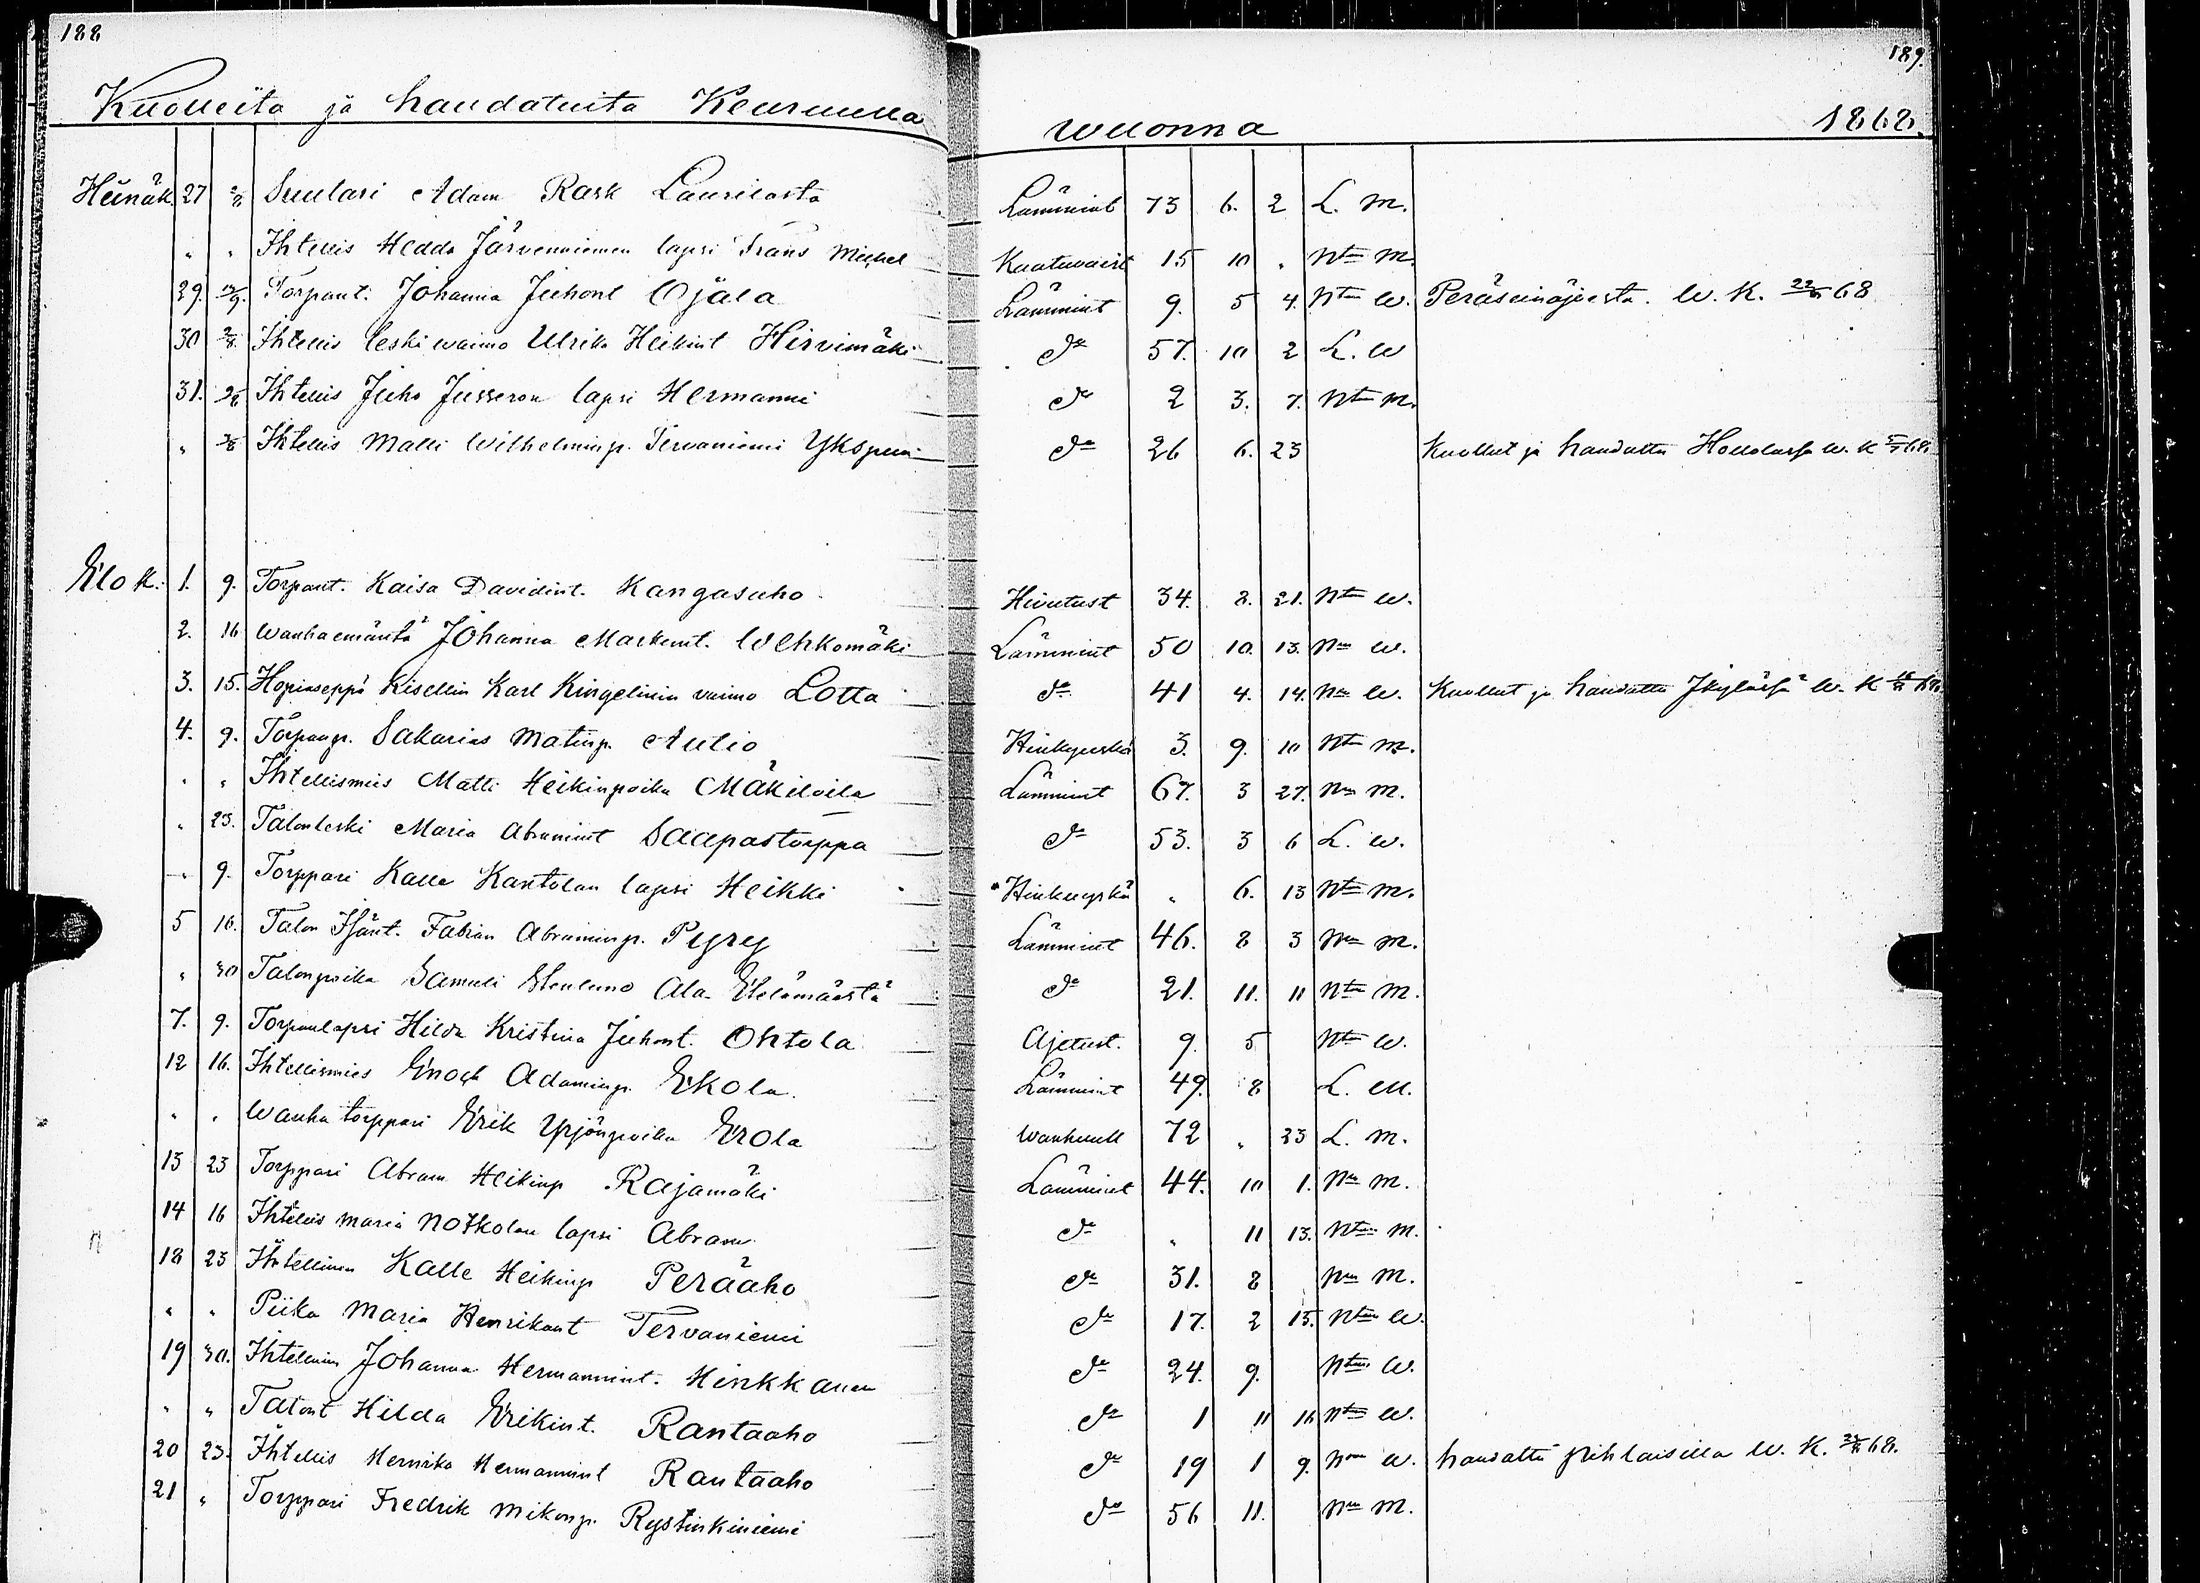 188
189.
Kuolleita ja haudatuita Keuruulla wuonna 1868.
Heinäk. 27 2/8 Suutari Adam Rask Laurilasta Lämmint 73 6. 2 L. M.
" " Ihtellis Hedda Järvenniemen lapsi Frans Michel 15 10 " Ntm M.
29. Torpant. Johanna Juhont Ojala Lämmint 9. 5 4. Ntm W. Peräseinäjoesta. W. K. 68
30 2/8 Ihtellis leski waimo Ulrika Heikint Hirvimäki do 57. 10 2 L. W
31. 2/8 Ihtellis Juho Jusseron lapsi Hermanni do 2 3. 7. Ntm M.
" Ihtellis Matti Wilhelminp. Tervaniemi Ykspuu do 26 6. 23 Kuollut ja haudattu Hollolassa W. K 68.
Elo k. 1. 9. Torpant. Kaisa Davidint. Kangasaho Hivutust 34. 8. 21. Ntm W.
2. 16 Wanhaemäntä Johanna Markunt. Wehkomäki Lämmint 50 10. 13. Nm W.
3. 15. Hopiaseppä Kisellin Karl Kingelinin vaimo Lotta do 41 4. 14. Nm W. Kuollut ja haudattu W. K 68.
4. 9. Torpanp. Sakarias Matinp. Autio Hinkuyskä 3. 9. 10 Ntm M.
" " Ihtellismies Matti Heikinpoika Mäkiloila Lämmint 67. 3 27. Nm M.
" 23. Talonleski Maria Abramint Saapastorppa do 53. 3 6 L. W.
" 9. Torppari Kalle Kantolan lapsi Heikki Hinkuyskä " 6. 13 Ntm M.
5 16. Talon Isänt. Fabian Abraminp. Pyry Lämmint 46. 8 3 Nm M.
" 30 Talonpoika Samuli Ala Elelämäestä do 21. 11. 11 Ntm M.
7. 9. Torpanlapsi Hilda Kristina Juhont. Ohtola Ajetust. 9. 5 Ntm W.
12 16. Ihtellismies Enoch Adaminp. Ekola. Lämmint 49. 8 L. M.
" " Wanha torppari Erik Yrjönpoika Erola Wanhuutt 72 " 23 L. M.
13 23 Torppari Abram Heikinp Rajamäki Lämmint 44. 10 1. Nm M.
14 16 Ihtellis Maria Notkolan lapsi Abram do " 11 13. Ntm M.
18 23 Ihtellinen Kalle Heikinp Perääho do 31. 8 Nm M.
" " Piika Maria Henrikant Tervaniemi do 17. 2 15. Ntm W.
19 30. Ihtellinen Johanna Hermannint. Hinkkanen do 24. 9. Ntm W.
" " Talont Hilda Erikint. Rantaaho do 1 11 16 Ntm W.
20 23. Ihtellis Henrika Hermannint Rantaaho do 19 1 9. Nm W. haudattu Pihlaisilla W. K. 68.
21 " Torppari Fredrik Mikonp. Rystinkiniemi do 56 11. Nm M.